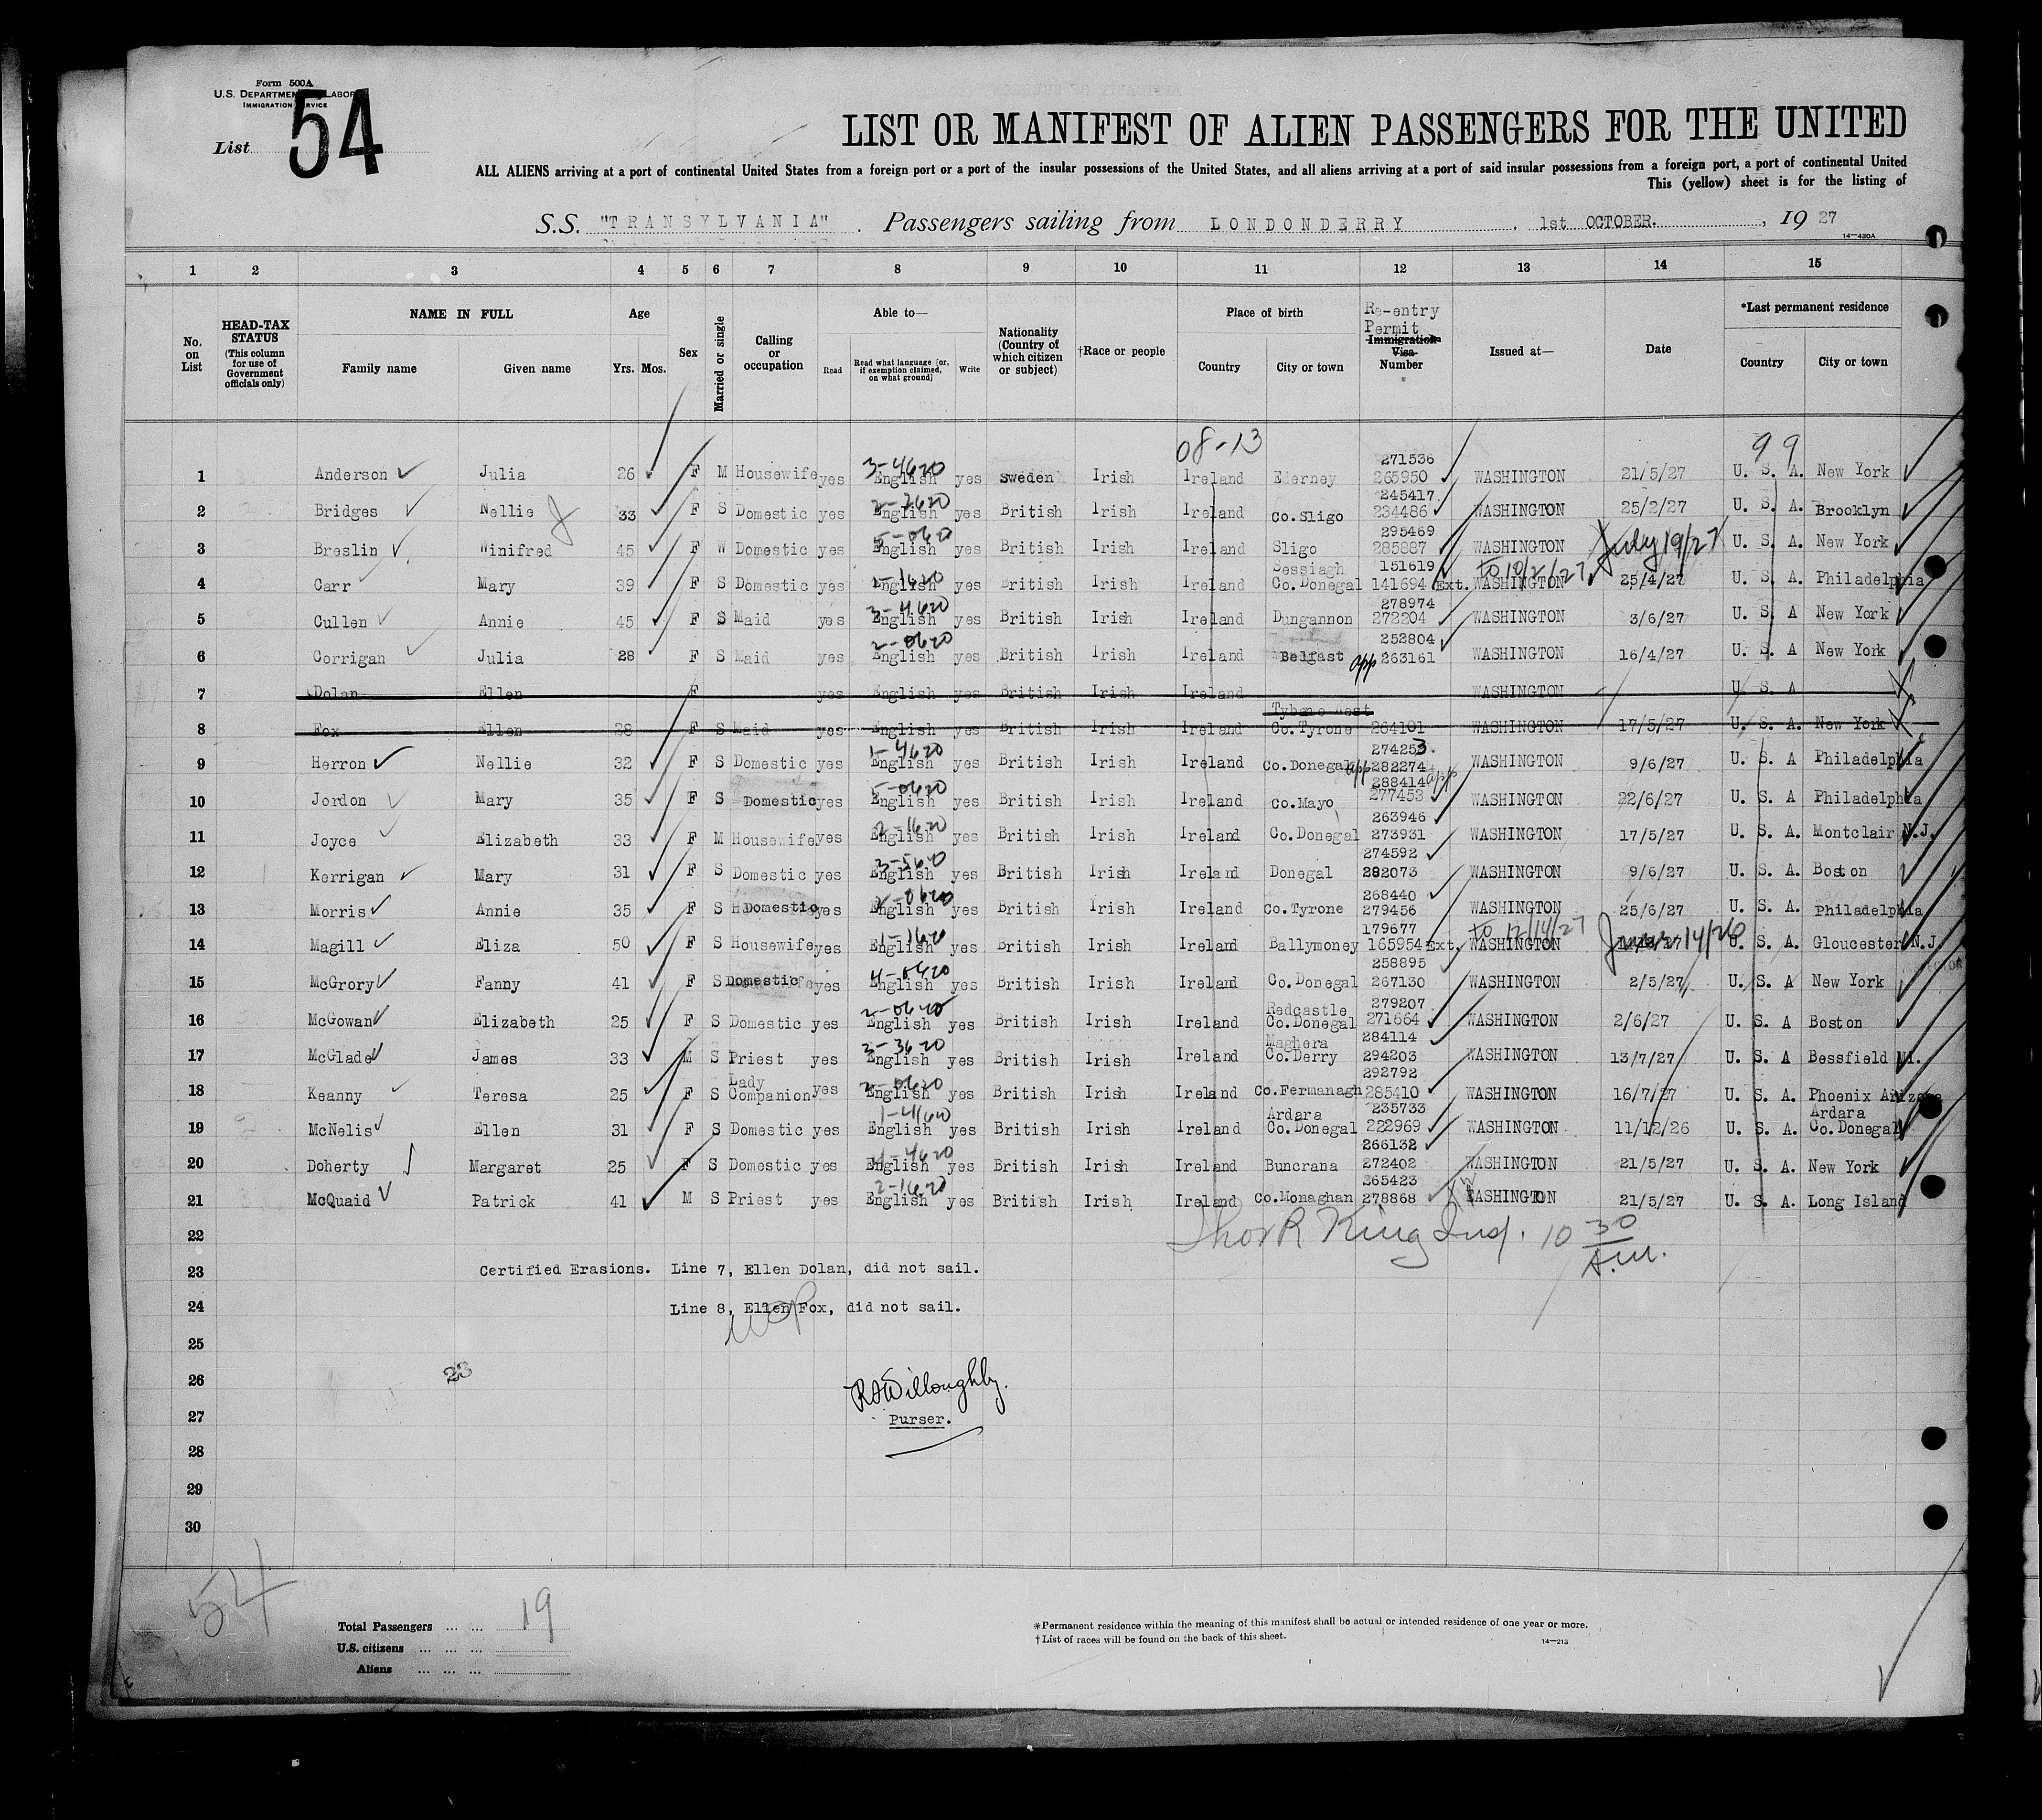 Form 500A
U.S. DEPARTMENT LABOR
IMMIGRATION SERVICE
List 54
LIST OR MANIFEST OF ALIEN PASSENGERS FOR THE UNITED
ALL ALIENS arriving at a port of continental United States from a foreign port or a port of the insular possessions of the United States, and all aliens arriving at a port of said insular possessions from a foreign port, a port of continental United
This (yellow) sheet is for the listing of
S.S. "TRANSYLVANIA". Passengers sailing from LONDONDERRY, 1st OCTOBER., 19 27
14—430A
1 2 3 4 5 6 7 8 9 10 11 12 13 14 15
No. on List
HEAD-TAX STATUS (This column for use of Government officials only)
NAME IN FULL
Family name Given name
Age
Yrs. Mos.
Sex
Married or single
Calling or occupation
Able to—
Read Read what language [or, if exemption claimed, on what ground] Write
Nationality (Country of which citizen or subject)
†Race or people
Place of birth
Country City or town
Re-entry Permit Immigration Visa Number
Issued at—
Date
*Last permanent residence
Country City or town
08-13 99
3-4620 271536
1 Anderson Julia 26 F M Housewife yes English yes Sweden Irish Ireland Ederney 265950 WASHINGTON 21/5/27 U. S. A. New York
245417
2 Bridges Nellie 33 F S Domestic yes English yes British Irish Ireland Co.Sligo 234486 WASHINGTON 25/2/27 U. S. A. Brooklyn
5-0620 295469
3 Breslin Winifred 45 F W Domestic yes English yes British Irish Ireland Sligo 285887 WASHINGTON July 19/27 U. S. A. New York
Sessiagh 151619 to 10/2/27
4 Carr Mary 39 F S Domestic yes English yes British Irish Ireland Co.Donegal 141694 Ext. WASHINGTON 25/4/27 U. S. A. Philadelphia
3-4620 278974
5 Cullen Annie 45 F S Maid yes English yes British Irish Ireland Dungannon 272204 WASHINGTON 3/6/27 U. S. A New York
2-0620 252804
6 Corrigan Julia 28 F S Maid yes English yes British Irish Ireland Belfast app 263161 WASHINGTON 16/4/27 U. S. A New York
7 Dolan Ellen F yes English yes British Irish Ireland WASHINGTON U. S. A
8 Fox Ellen 28 F S Maid yes English yes British Irish Ireland Co.Tyrone 264101 WASHINGTON 17/5/27 U. S. A. New York
1-4620 274253
9 Herron Nellie 32 F S Domestic yes English yes British Irish Ireland Co.Donegal app 282274 WASHINGTON 9/6/27 U. S. A Philadelphia
5-0620 288414 app
10 Jordon Mary 35 F S Domestic yes English yes British Irish Ireland Co.Mayo 277453 WASHINGTON 22/6/27 U. S. A Philadelphia
2-1620 263946
11 Joyce Elizabeth 33 F M Housewife yes English yes British Irish Ireland Co.Donegal 273931 WASHINGTON 17/5/27 U. S. A. Montclair N.J.
274592
12 Kerrigan Mary 31 F S Domestic yes English yes British Irish Ireland Donegal 282073 WASHINGTON 9/6/27 U. S. A. Boston
268440
13 Morris Annie 35 F S Domestic yes English yes British Irish Ireland Co.Tyrone 279456 WASHINGTON 25/6/27 U. S. A. Philadelphia
1-1620 179677 to 12/14/27
14 Magill Eliza 50 F S Housewife yes English yes British Irish Ireland Ballymoney 165954 Ext. WASHINGTON June 14/26 U. S. A. Gloucester N.J.
258895
15 McGrory Fanny 41 F S Domestic yes English yes British Irish Ireland Co.Donegal 267130 WASHINGTON 2/5/27 U. S. A New York
Redcastle 279207
16 McGowan Elizabeth 25 F S Domestic yes English yes British Irish Ireland Co.Donegal 271664 WASHINGTON 2/6/27 U. S. A Boston
3-3620 Maghera 284114
17 McGlade James 33 M S Priest yes English yes British Irish Ireland Co.Derry 294203 WASHINGTON 13/7/27 U. S. A Bessfield
292792
18 Keanny Teresa 25 F S Lady Companion yes English yes British Irish Ireland Co.Fermanagh 285410 WASHINGTON 16/7/27 U. S. A. Phoenix Arizona
Ardara 235733 Ardara
19 McNelis Ellen 31 F S Domestic yes English yes British Irish Ireland Co.Donegal 222969 WASHINGTON 11/12/26 U. S. A. Co.Donegal
266132
20 Doherty Margaret 25 F S Domestic yes English yes British Irish Ireland Buncrana 272402 WASHINGTON 21/5/27 U. S. A. New York
2-1620 265423
21 McQuaid Patrick 41 M S Priest yes English yes British Irish Ireland Co.Monaghan 278868 WASHINGTON 21/5/27 U. S. A. Long Island
22 Thos R King Insp. 10 30 A.M.
23 Certified Erasions. Line 7, Ellen Dolan, did not sail.
24 Line 8, Ellen Fox, did not sail.
25
23
26 RAWilloughby.
27 Purser.
28
29
30
54
Total Passengers ... ... 19
U.S. citizens ... ... ...
Aliens ... ... ...
*Permanent residence within the meaning of this manifest shall be actual or intended residence of one year or more.
†List of races will be found on the back of this sheet.
14—213